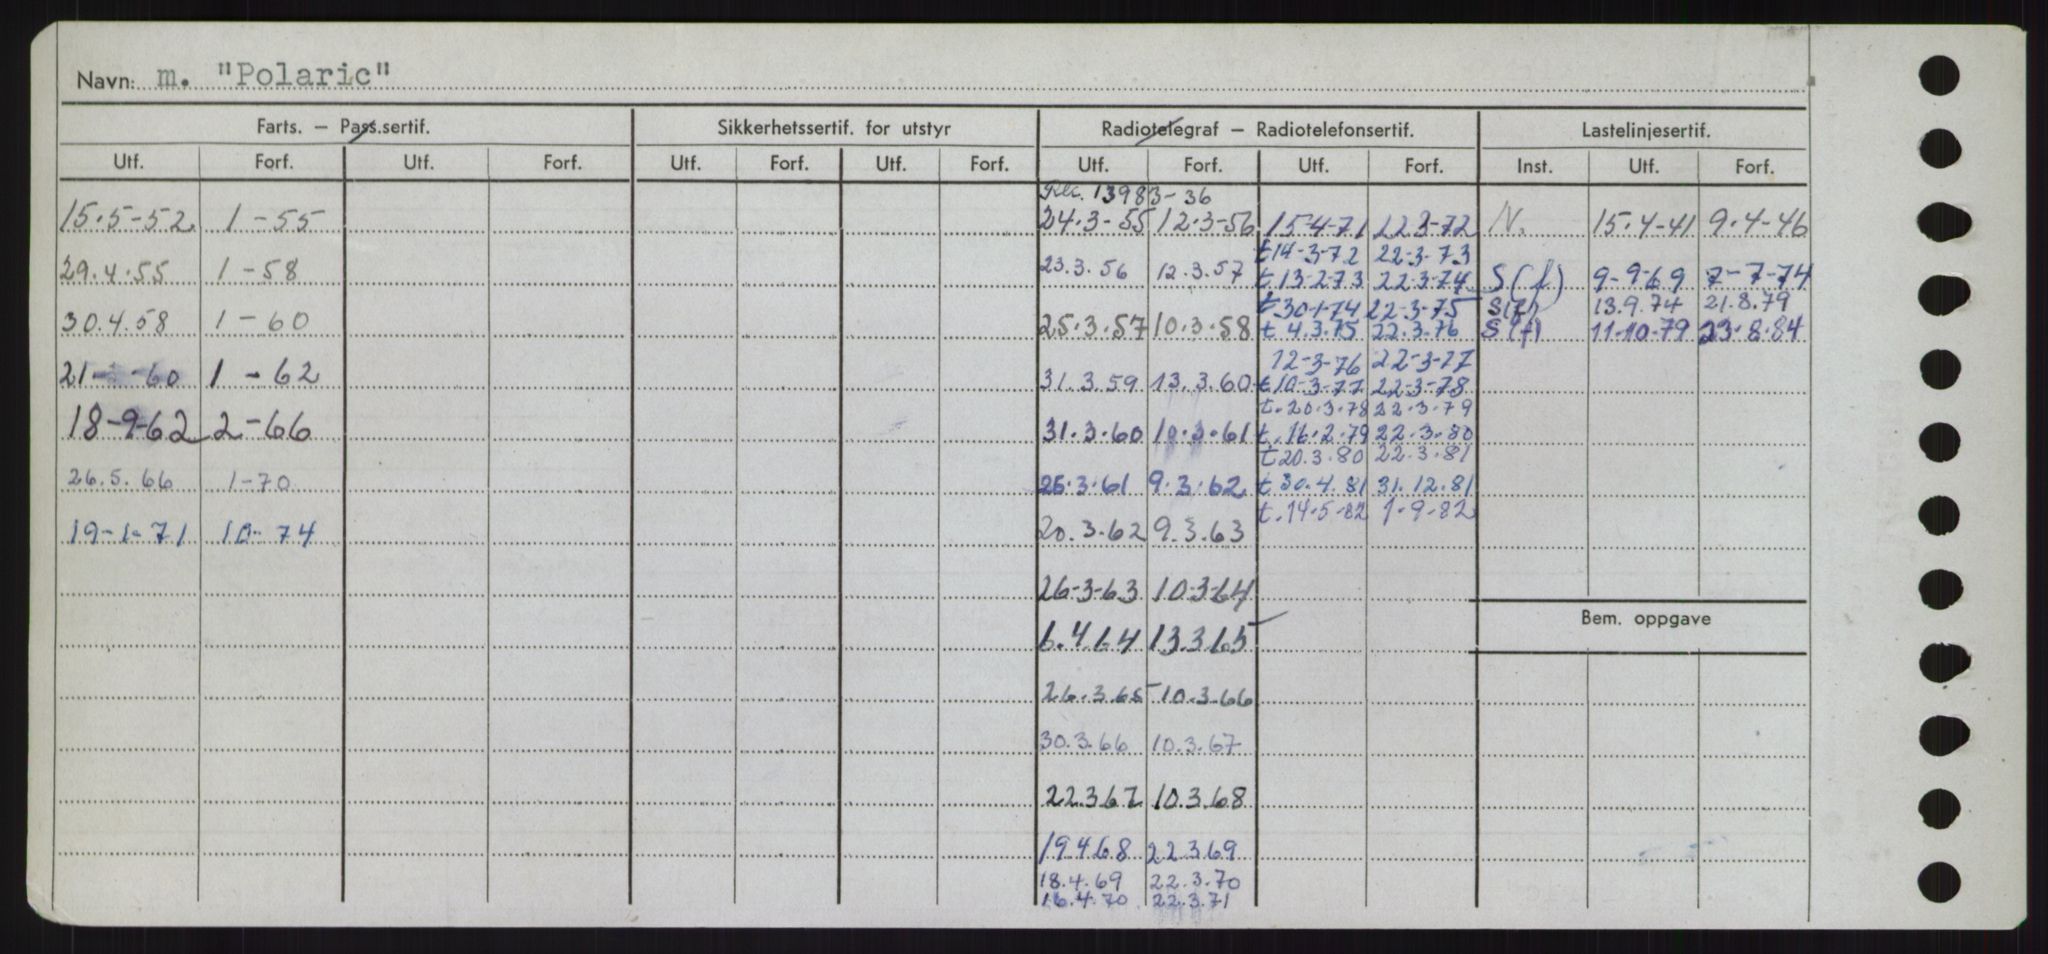 Navn: m. "Polaric"
Farts. – Pass.sertif. Sikkerhetssertif. for utstyr Radiotelegraf – Radiotelefonsertif. Lastelinjesertif.
Utf. Forf. Utf. Forf. Utf. Forf. Utf. Forf. Utf. Forf. Utf. Forf. Inst. Utf. Forf.
13983-36
15.5-52 1-55 24.3-55 12.3-56 15-4-71 22.3-72 N. 15.4-41 9.4-46
t14-3-72 22-3-73
29.4.55 1-58 23.3.56 12.3.57 t13-2-73 22.3-74 S(f) 9-9-69 7-7-74
t30-1-74 22-3-75 S(f) 13.9.74 21.8.79
30.4.58 1-60 25.3.57 10.3.58 t 4.3.75 22.3.76 S(f) 11-10-79 23.8.84
12-3-76 22-3-77
21- -60 1-62 31.3.59 13.3.60 t10-3-77 22-3-78
t.20.3.78 22.3.79
18-9-62 2-66 31.3.60 10.3.61 t.16.2.79 22.3.80
t20.3.80 22.3.81
26.5.66 1-70 25.3.61 9.3.62 t 30.4.81 31.12.81
t.14-5-82 1-9-82
19-1-71 10-74 20.3.62 9.3.63
26-3-63 10-3-64
Bem. oppgave
6.4.64 13.3.65
26.3.65 10.3.66
30.3.66 10.3.67
22.3.67 10.3.68
19.4.68 22.3.69
18.4.69 22.3.70
16.4.70 22.3.71